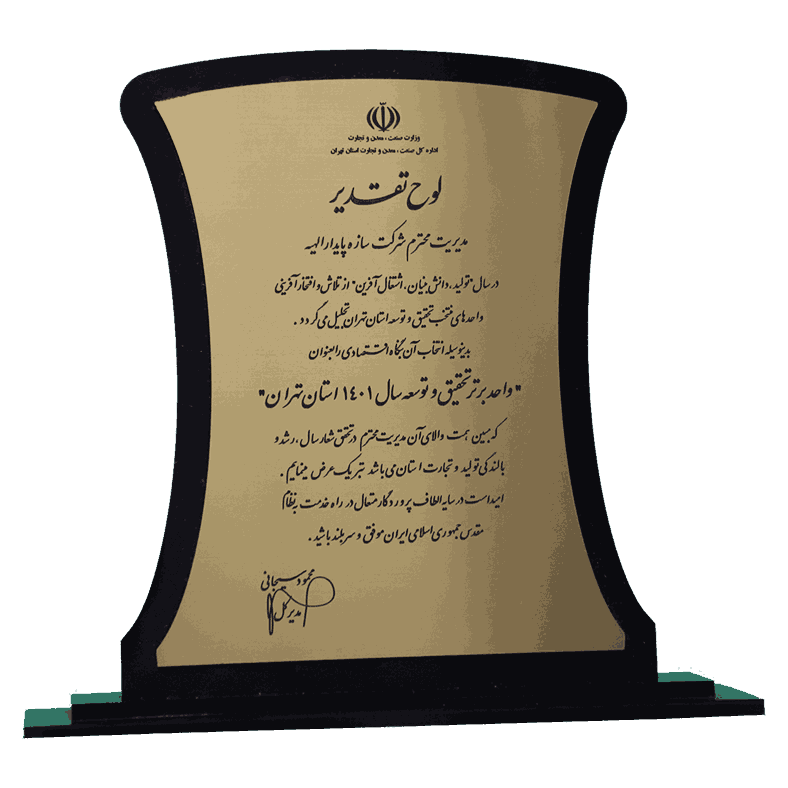 وزارت صنعت، معدن و تجارت
اداره کل صنعت، معدن و تجارت استان تهران
لوح تقدیر
مدیریت محترم شرکت سازه پایدار الهیه
در سال "تولید، دانش بنیان، اشتغال آفرین" از تلاش و افتخار آفرینی
واحدهای منتخب تحقیق و توسعه استان تهران تجلیل می گردد.
بدینوسیله انتخاب آن بنگاه اقتصادی را بعنوان
"واحد برتر تحقیق و توسعه سال ۱۴۰۱ استان تهران"
که مبین همت والای آن مدیریت محترم در تحقق شعار سال، رشد و
بالندگی تولید و تجارت استان می باشد تبریک عرض مینمایم.
امید است در سایه الطاف پروردگار متعال در راه خدمت به نظام
مقدس جمهوری اسلامی ایران موفق و سربلند باشید.
محمود سیجانی
مدیر کل